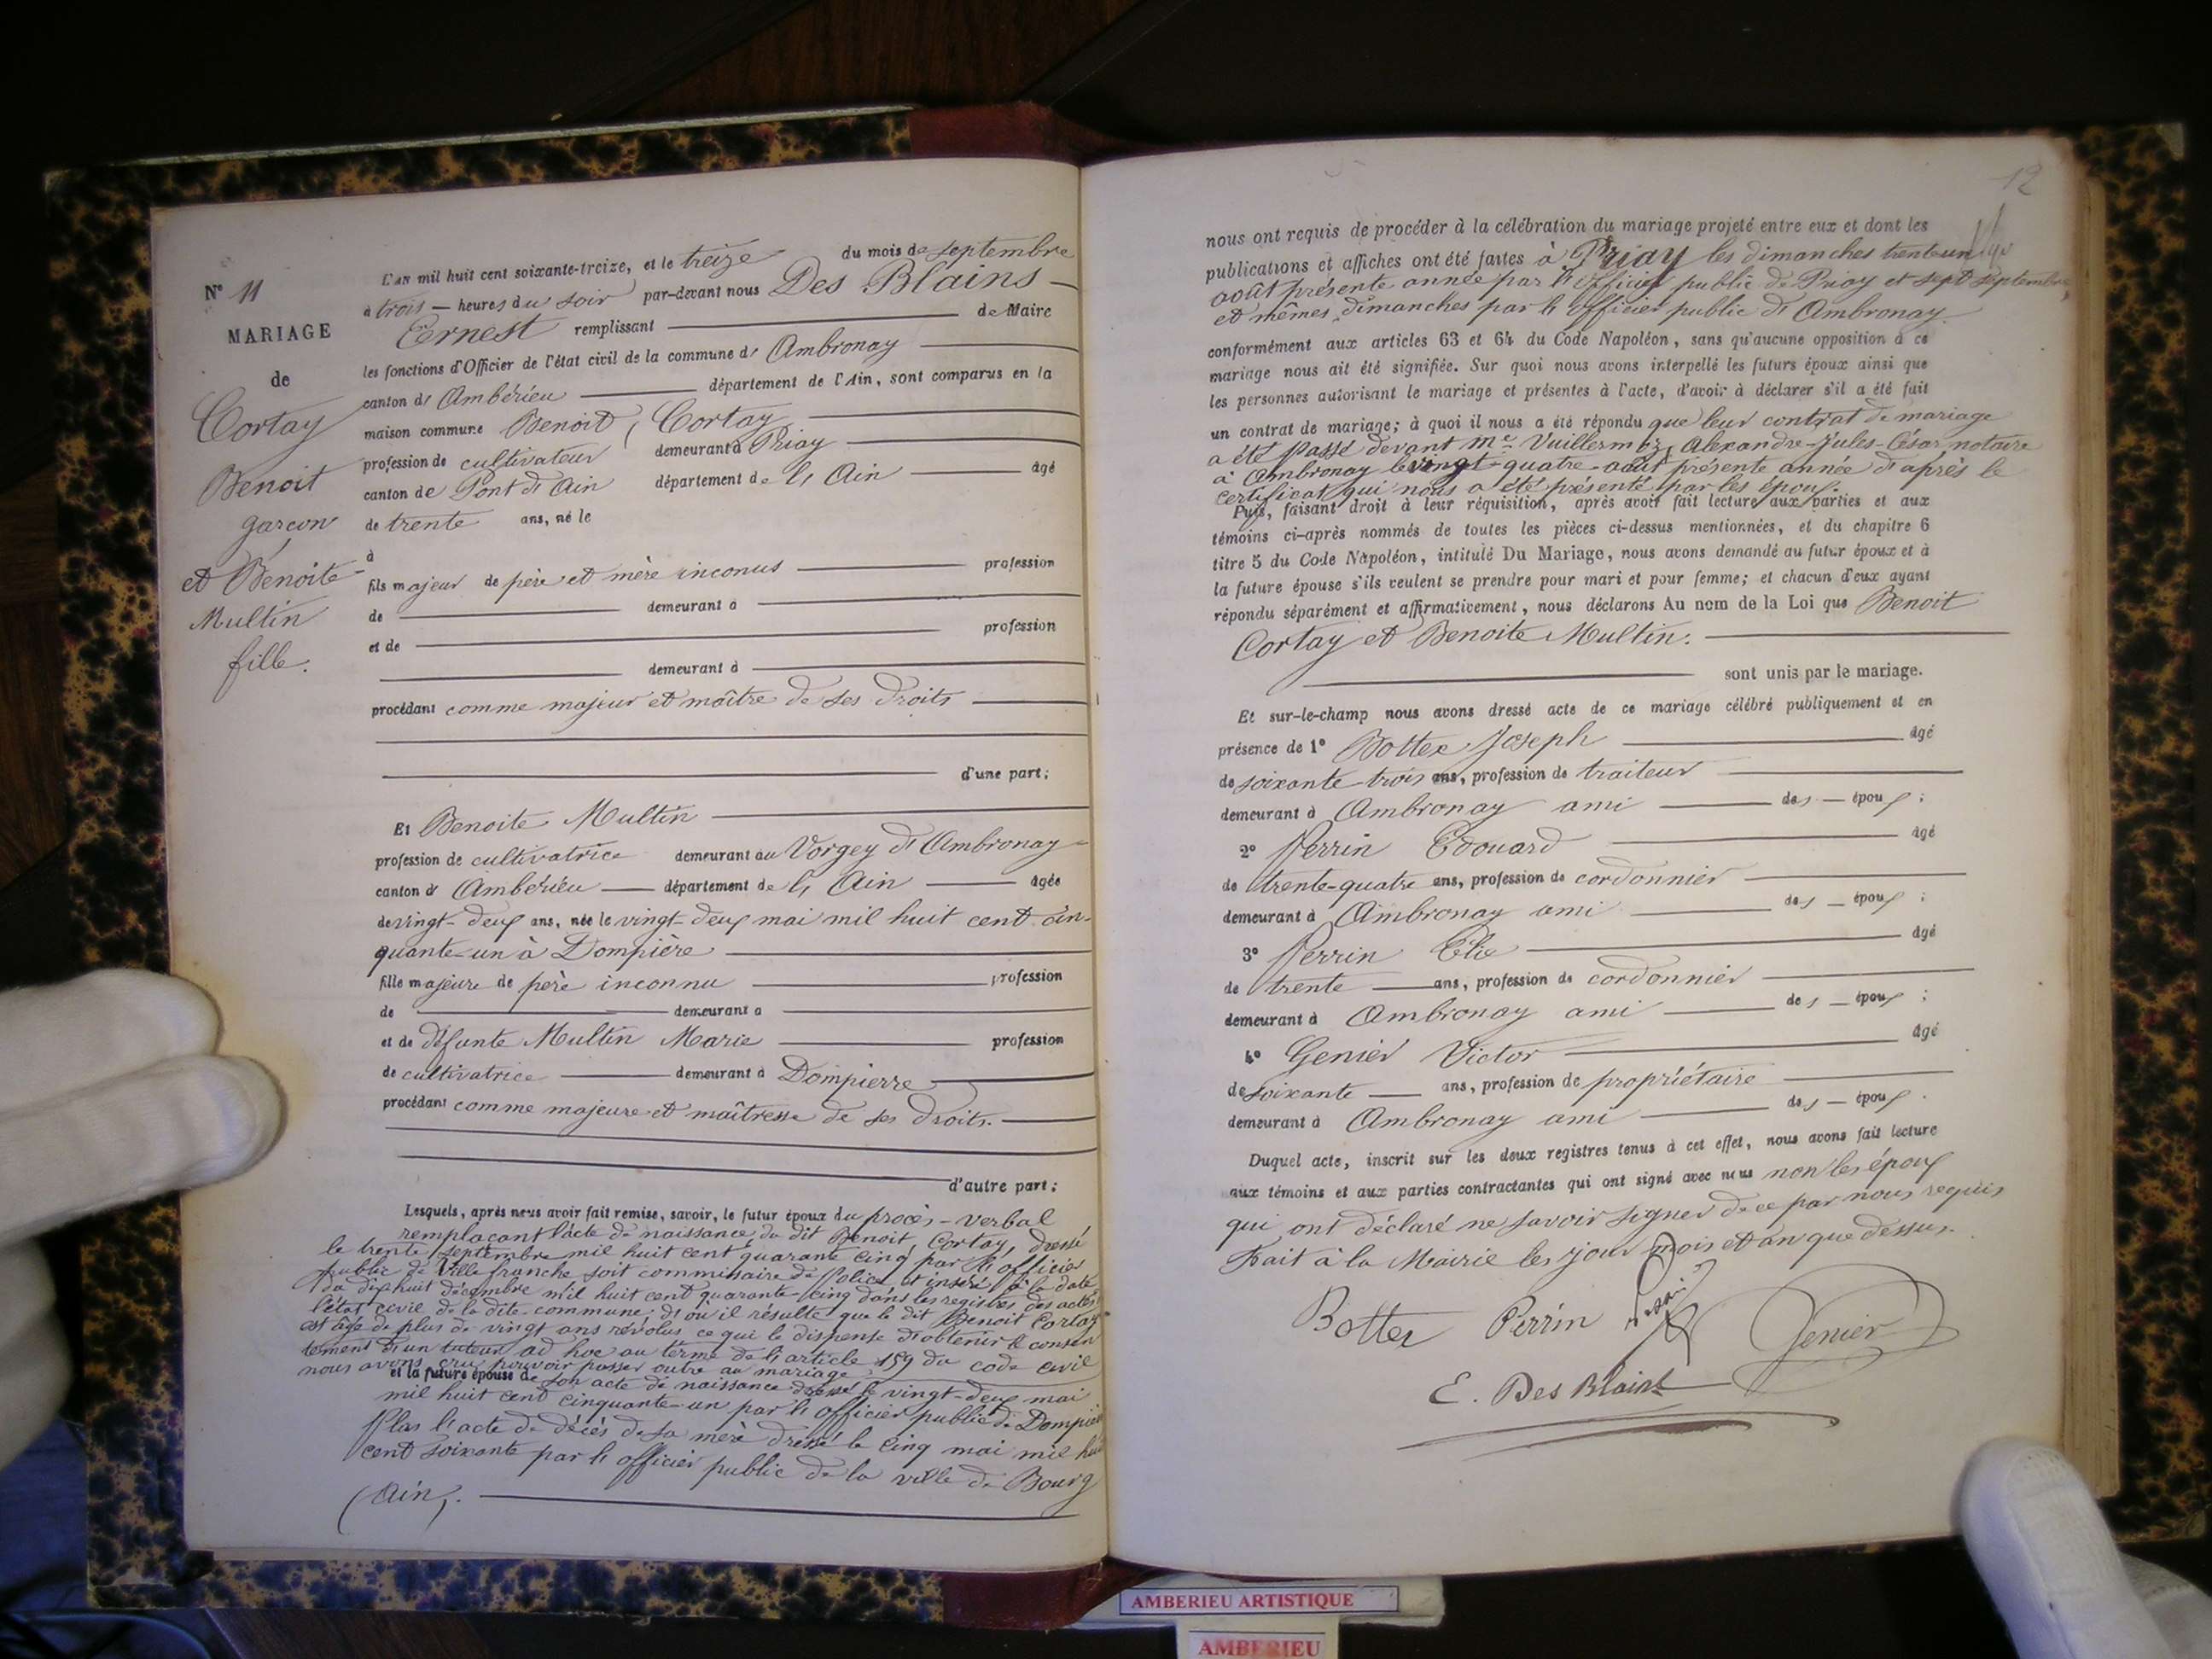 N° 11
MARIAGE
de
Cortay
Benoit
garçon
et Benoite
Multin
fille.
L'an mil huit cent soixante-treize, et le treize du mois de septembre
à trois heures du soir par-devant nous Des Blains
Ernest remplissant de Maire
les fonctions d'Officier de l'état civil de la commune d' Ambronay
canton d' Ambérieu département de l'Ain, sont comparus en la
maison commune Benoit, Cortay
profession de cultivateur demeurant à Priay
canton de Pont d'Ain département de l'Ain âgé
de trente ans, né le
à
fils majeur de père et mère inconus profession
de demeurant à
et de profession
demeurant à
procédant comme majeur et maître de ses droits
d'une part;
Et Benoite Multin
profession de cultivatrice demeurant au Vorgey d'Ambronay
canton d' Ambérieu département de l'Ain âgée
de vingt-deux ans, née le vingt-deux mai mil huit cent cin-
quante-un à Dompière
fille majeure de père inconnu profession
de demeurant à
et de défunte Multin Marie profession
de cultivatrice demeurant à Dompierre
procédant comme majeure et maîtresse de ses droits.
d'autre part;
Lesquels, après nous avoir fait remise, savoir, le futur époux du procès-verbal
remplaçant l'acte de naissance du dit Benoit, Cortay, dressé
le trente septembre mil huit cent quarante cinq par l'officier
public de Villefranche soit commissaire de Police et inséré à la date
du dix huit décembre mil huit cent quarante-cinq dans les registres des actes
l'état civil de la dite commune; d'où il résulte que le dit Benoit Cortay
est âgé de plus de vingt ans révolus ce qui le dispense d'obtenir le consen
tement d'un tuteur ad hoc au terme de l'article 159 du code civil
nous avons cru pouvoir passer outre au mariage
et la future épouse de son acte de naissance dressé le vingt-deux mai
mil huit cent cinquante-un par l'officier public de Dompie
Plus l'acte de décès de sa mère dressé le cinq mai mil hui
cent soixante par l'officier public de la ville de Bourg
(Ain).
12
nous ont requis de procéder à la célébration du mariage projeté entre eux et dont les
publications et affiches ont été faites à Priay les dimanches trente un
août présente année par l'officier public de Priay et sept septembre,
et mêmes dimanches par l'officier public d'Ambronay.
conformément aux articles 63 et 64 du Code Napoléon, sans qu'aucune opposition à ce
mariage nous ait été signifiée. Sur quoi nous avons interpellé les futurs époux ainsi que
les personnes autorisant le mariage et présentes à l'acte, d'avoir à déclarer s'il a été fait
un contrat de mariage; à quoi il nous a été répondu que leur contrat de mariage
a été passé devant Me Vuillermoz, Alexandre-Jules-César, notaire
à Ambronay le vingt-quatre août présente année d'après le
certificat qui nous a été présenté par les époux.
Puis, faisant droit à leur réquisition, après avoir fait lecture aux parties et aux
témoins ci-après nommés de toutes les pièces ci-dessus mentionnées, et du chapitre 6
titre 5 du Code Napoléon, intitulé Du Mariage, nous avons demandé au futur époux et à
la future épouse s'ils veulent se prendre pour mari et pour femme; et chacun d'eux ayant
répondu séparément et affirmativement, nous déclarons Au nom de la Loi que Benoit
Cortay et Benoite Multin.
sont unis par le mariage.
Et sur-le-champ nous avons dressé acte de ce mariage célébré publiquement et en
présence de 1° Botter Joseph âgé
de soixante-trois ans, profession de traiteur
demeurant à Ambronay ami des époux;
2° Perrin Edouard âgé
de trente-quatre ans, profession de cordonnier
demeurant à Ambronay ami des époux;
3° Perrin Elie âgé
de trente ans, profession de cordonnier
demeurant à Ambronay ami des époux;
4° Genier Victor âgé
de soixante ans, profession de propriétaire
demeurant à Ambronay ami des époux.
Duquel acte, inscrit sur les deux registres tenus à cet effet, nous avons fait lecture
aux témoins et aux parties contractantes qui ont signé avec nous non les époux
qui ont déclaré ne savoir signer de ce par nous requis
Fait à la Mairie les jour mois et an que dessus.
Botter Perrin Genier
E. Des Blains
AMBERIEU ARTISTIQUE
AMBERIEU